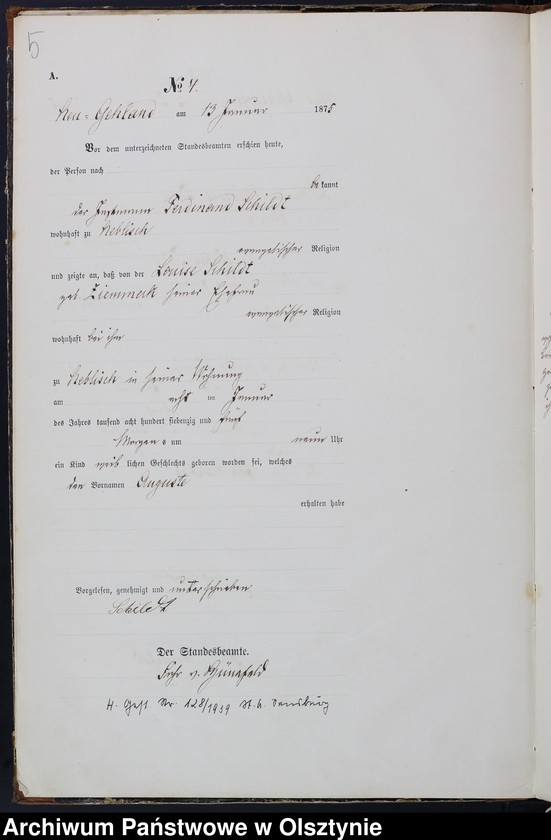 5
A.
№ 4.
Neu-Gehland am 13 Januar 1875
Vor dem unterzeichneten Standesbeamten erschien heute,
der Person nach
bekannt
der Instmann Ferdinand Schildt
wohnhaft zu Keblisch
evangelischer Religion
und zeigte an, daß von der Louise Schildt
geb. Ziemmeck seiner Ehefrau
evangelischer Religion
wohnhaft bei ihm
zu Keblisch in seiner Wohnung
am acht ten Januar
des Jahres tausend acht hundert siebenzig und fünf
Morgens um neun Uhr
ein Kind weiblichen Geschlechts geboren worden sei, welches
den Vornamen Auguste
erhalten habe
Vorgelesen, genehmigt und unterschrieben
Schildt
Der Standesbeamte.
Frhr v.
H. Gest. Nr 128/1939 St. A. Sensburg
Archiwum Państwowe w Olsztynie